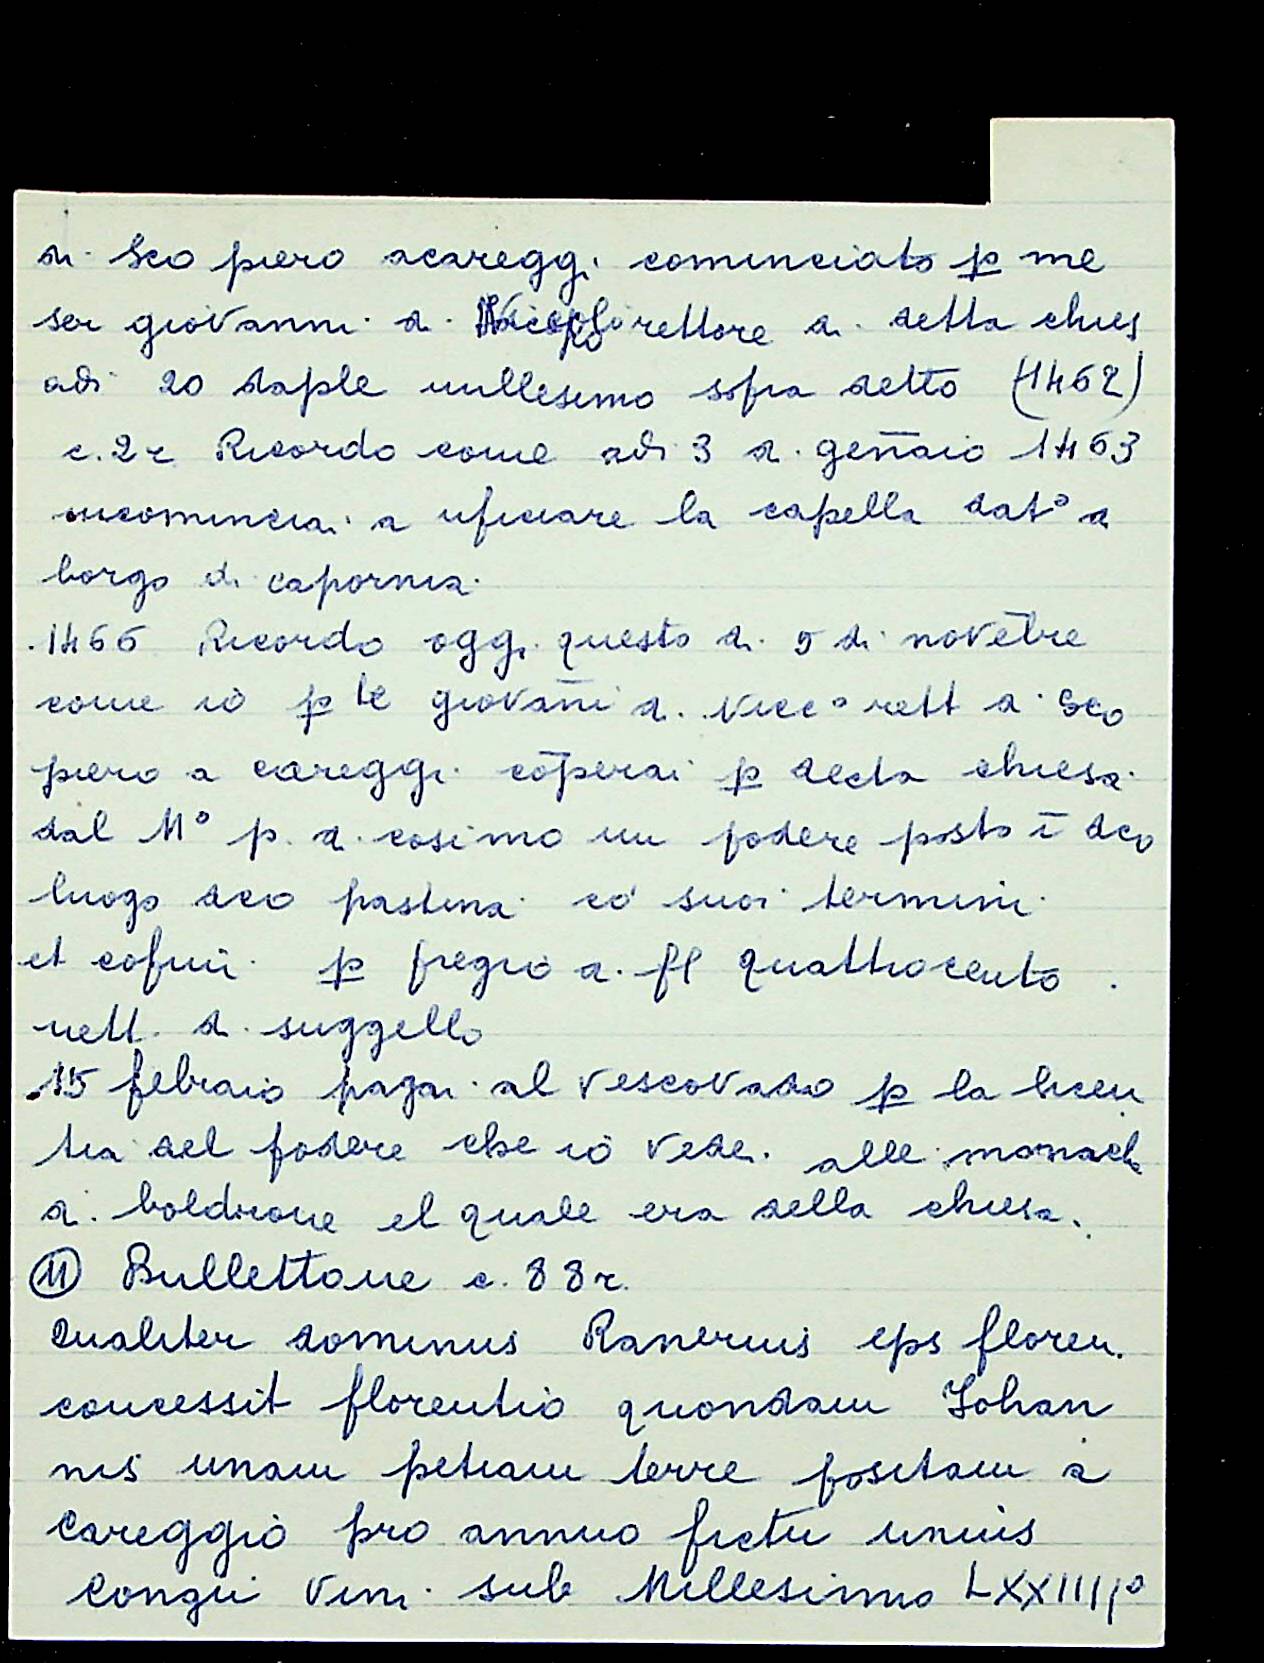 di Sco piero acareggi cominciato p me
ser giovanni di rettore di detta chies
adi 20 daple millesimo sopra detto (1462)
c. 2r Ricordo come adi 3 di geñaio 1463
incominciai a uficiare la capella dat° a
borgo di capornia
1466 Ricordo oggi questo di 5 di novēbre
come io p giovañi di rett di Sco
piero a careggi cōperai p decta chiesa
dal M° p. di cosimo un podere posto ī dco
luogo dco pastina cō suoi termini
et cofini p pregio di fl quattrocento .
nett. di suggello
15 febraio pagai al vescovado p la licen
tia del podere che io vedei alle monach
di boldrone el quale era della chiesa.
(11) Bullettone c. 88r.
Qualiter dominus Ranerius eps floren.
concessit florentio quondam Johan
nis unam petiam terre positam a
Careggio pro annuo fictu unius
Congii Vini sub Millesimo LXXIIII°